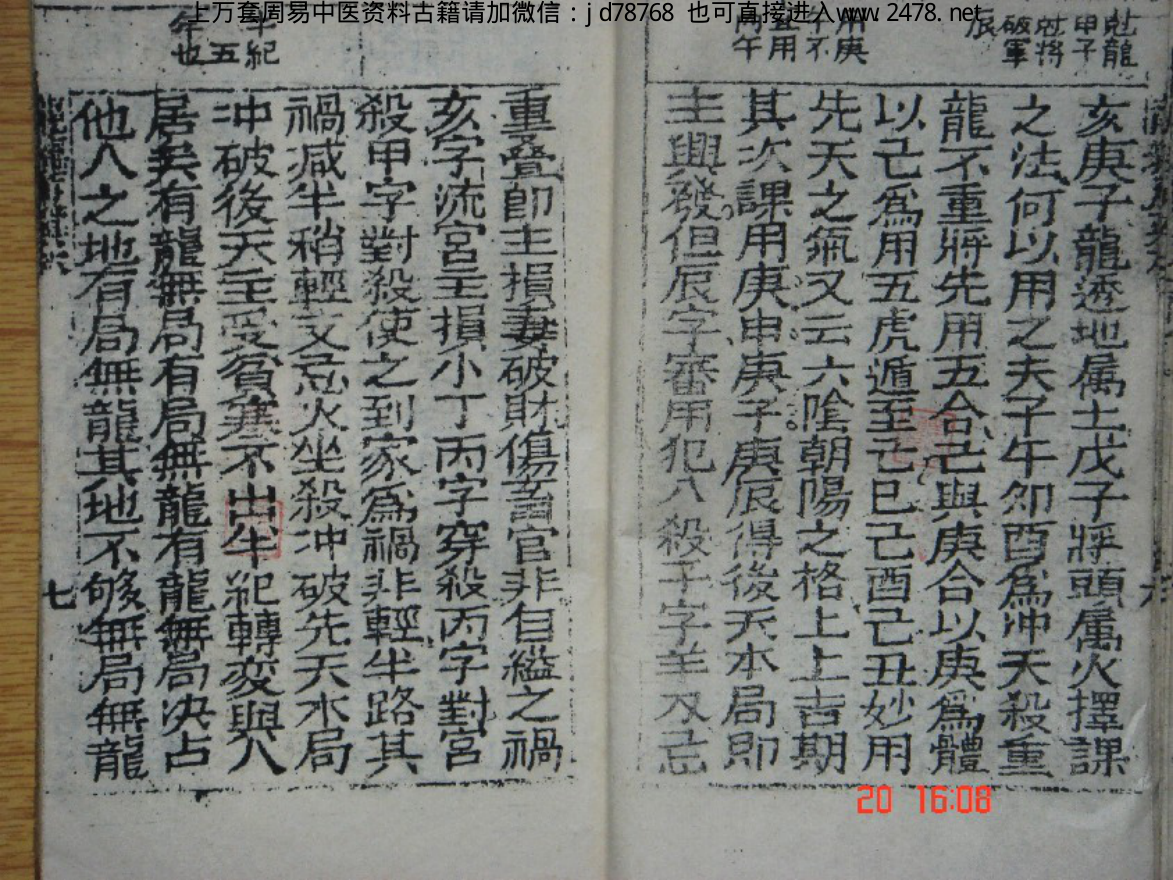 上万套周易中医资料古籍请加微信：jd78768 也可直接进入www.2478.net
尅龍
甲子
尅將
破軍
辰
用庚
午不
宜用
丙午
亥庚子龍透地属土戊子將頭属火擇課
之法何以用之夫子午夘酉爲冲天殺重
龍不重將先用五合己與庚合以庚爲體
以己爲用五虎遁至己巳己酉己丑妙用
先天之氣又云六陰朝陽之格上上吉期
其次課用庚申庚子庚辰得後天本局即
主興發但辰字審用犯八殺子字羊刃忌
六
半紀
五
年也
重疊卽主損妻破財傷畜官非自縊之禍
亥字流宮主損小丁丙字穿殺丙字對宮
殺甲字對殺使之到家爲禍非輕半路其
禍减半稍輕又忌火坐殺冲破先天水局
冲破後天主受貧寒不出半紀轉変與人
居矣有龍無局有局無龍有龍無局决占
他人之地有局無龍其地不够無局無龍
七
20 16:08